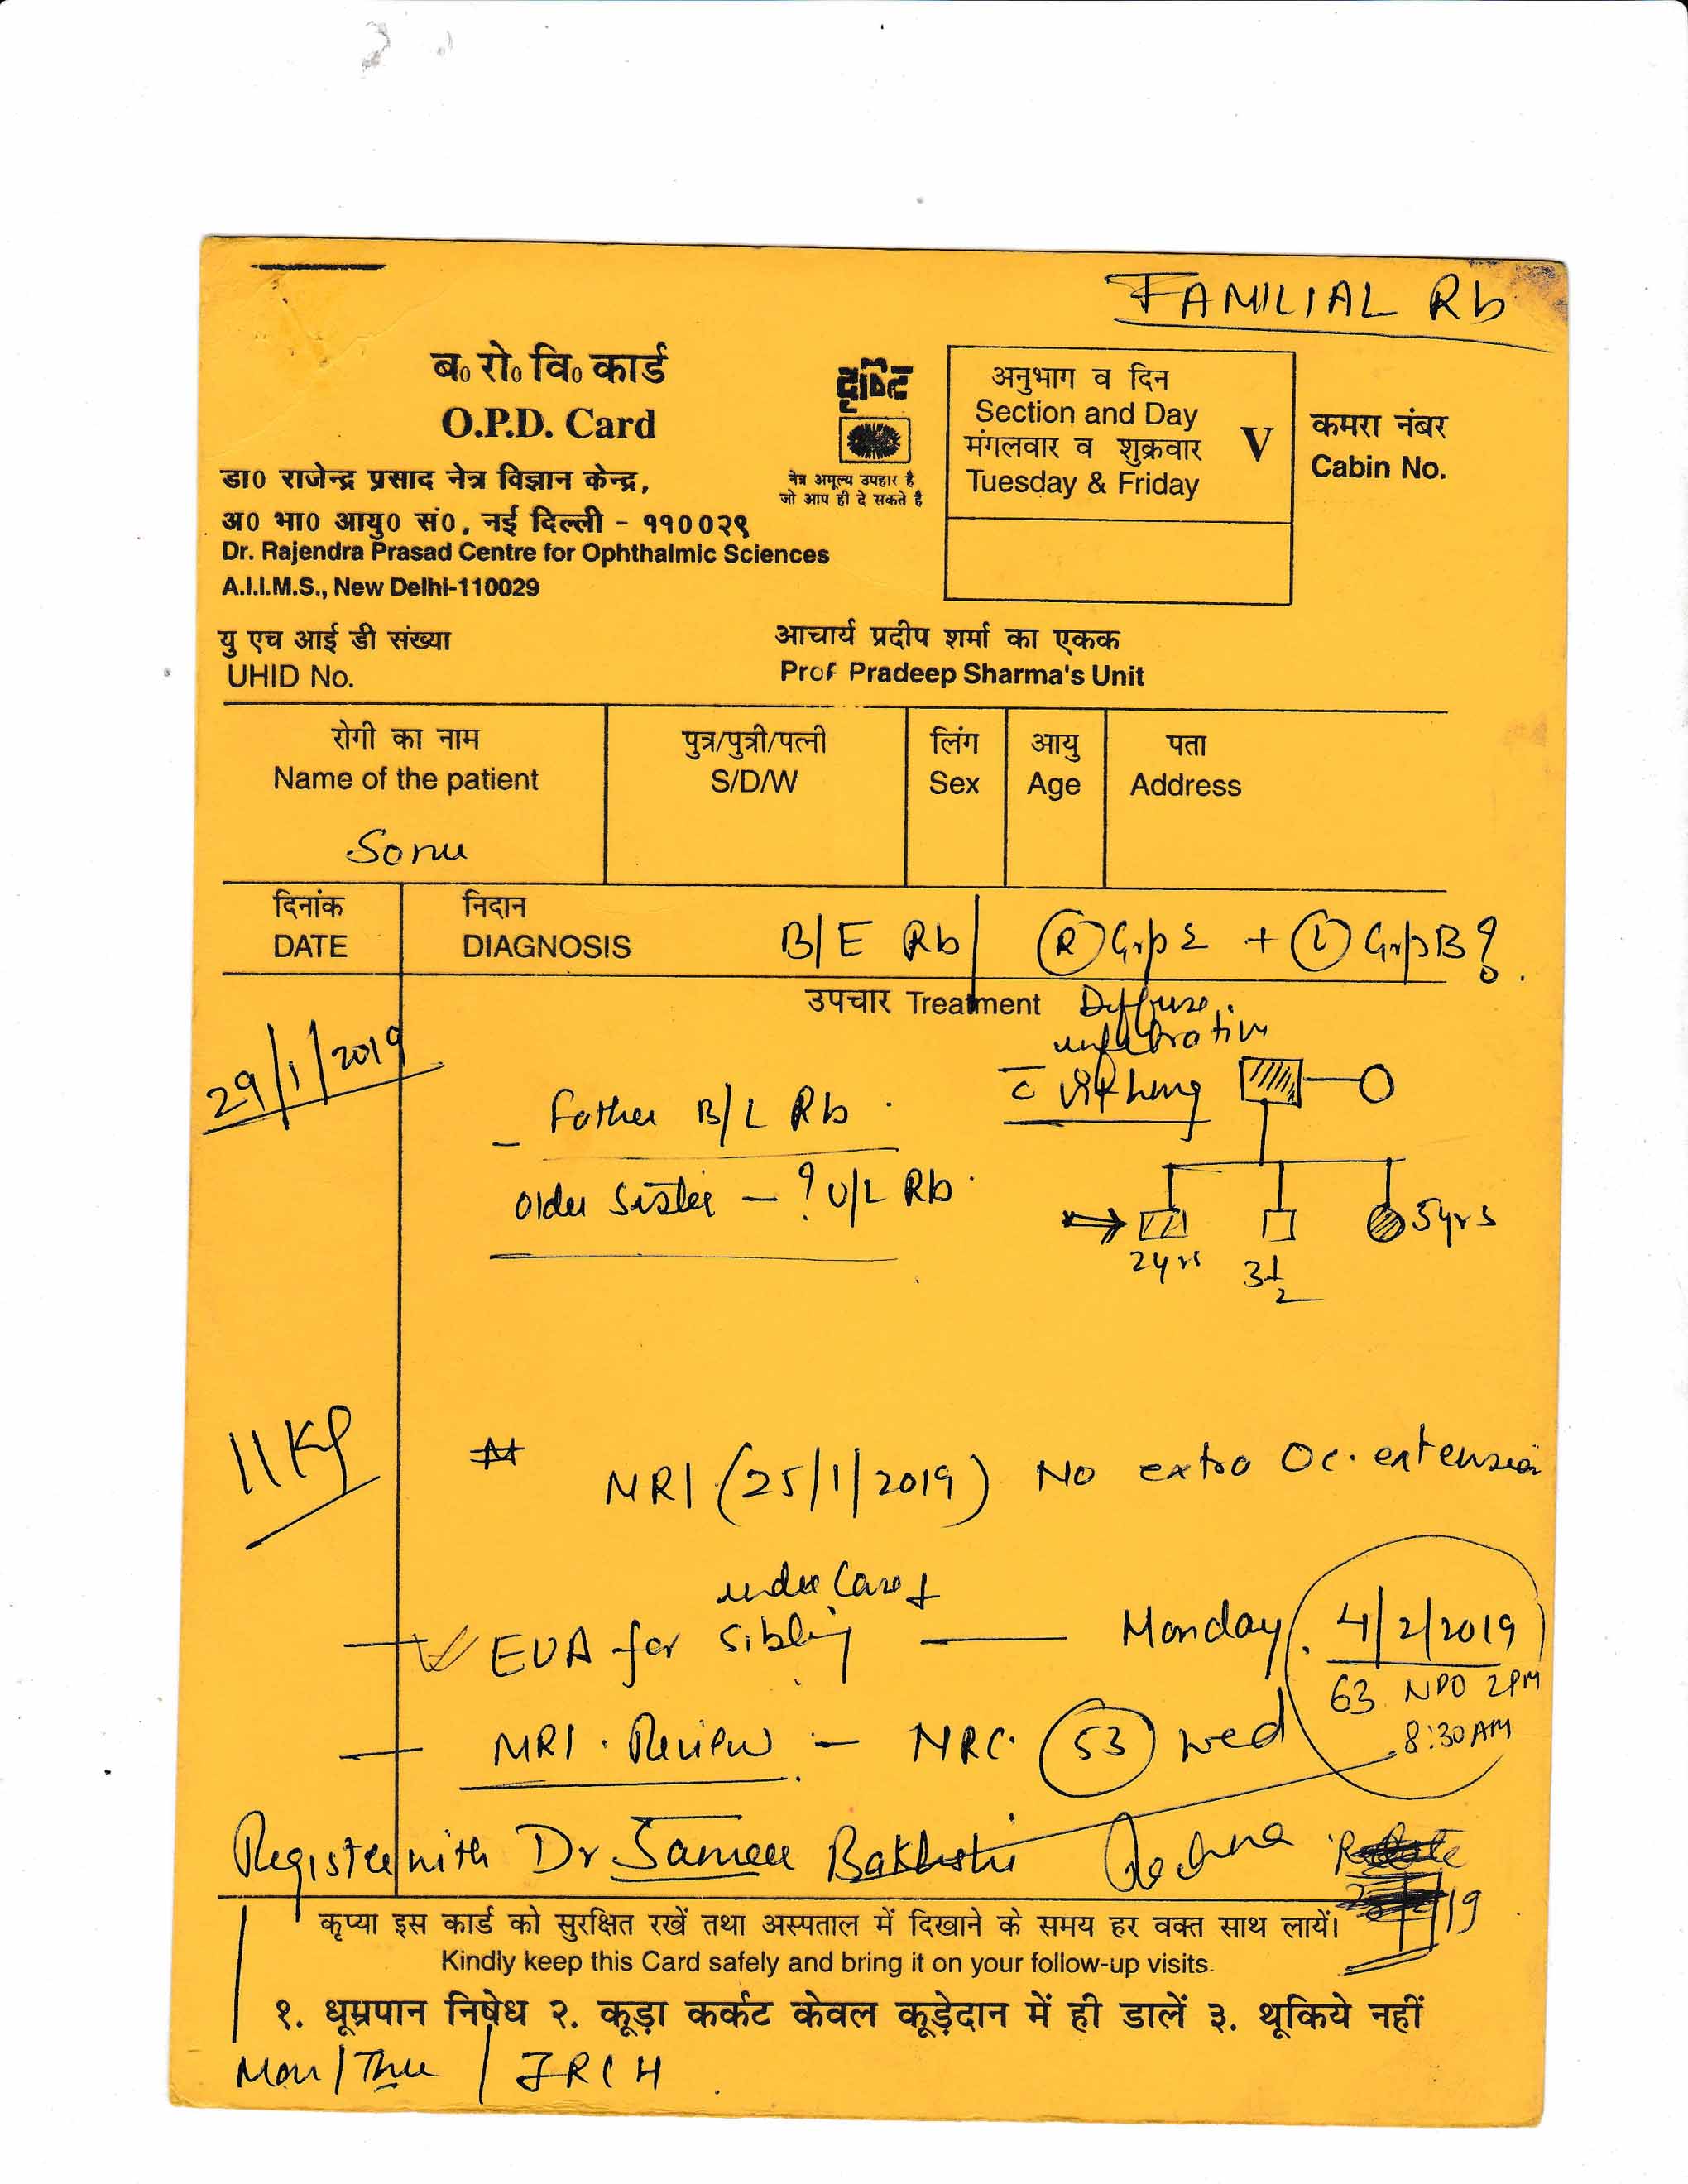 FAMILIAL Rb
ब० रो० वि० कार्ड
O.P.D. Card
डा० राजेन्द्र प्रसाद नेत्र विज्ञान केन्द्र,
अ० भा० आयु० सं०, नई दिल्ली - ११००२९
Dr. Rajendra Prasad Centre for Ophthalmic Sciences
A.I.I.M.S., New Delhi-110029
दृष्टि
नेत्र अमूल्य उपहार है
जो आप ही दे सकते है
अनुभाग व दिन
Section and Day
मंगलवार व शुक्रवार V
Tuesday & Friday
कमरा नंबर
Cabin No.
यु एच आई डी संख्या
UHID No.
आचार्य प्रदीप शर्मा का एकक
Prof Pradeep Sharma's Unit
रोगी का नाम पुत्र/पुत्री/पत्नी लिंग आयु पता
Name of the patient S/D/W Sex Age Address
Sonu
दिनांक निदान
DATE DIAGNOSIS B/E Rb (R) Grp E + (L) Grp B ?
उपचार Treatment Diffuse
infiltrative
29/1/2019
- Father B/L Rb
older sister - ? U/L Rb
5yrs
2yrs 3 1/2
11Kg
MRI (25/1/2019) No extra Oc. extension
under care of
EUA for sibling — Monday 4/2/2019
63 NPO 2PM
8:30AM
MRI Review - NRC 53 Wed
Register with Dr Sameer Bakhshi
19
कृप्या इस कार्ड को सुरक्षित रखें तथा अस्पताल में दिखाने के समय हर वक्त साथ लायें।
Kindly keep this Card safely and bring it on your follow-up visits.
१. धूम्रपान निषेध २. कूड़ा कर्कट केवल कूड़ेदान में ही डालें ३. थूकिये नहीं
Mon/Thu / IRCH